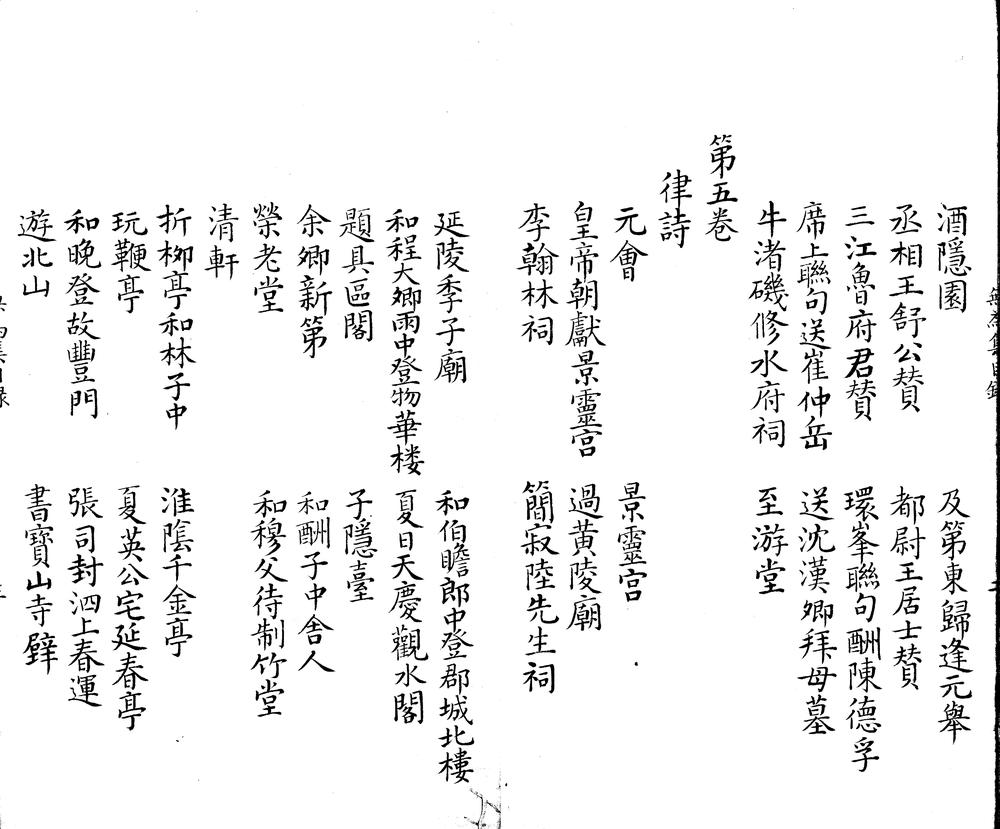 酒隱園　及第東歸逢元舉
丞相王舒公賛　都尉王居士賛
三江魯府君賛　環峯聯句酬陳德孚
席上聯句送崔仲岳　送沈漢卿拜母墓
牛渚磯修水府祠　至游堂
第五卷
律詩
元會　景靈宫
皇帝朝獻景靈宫　過黄陵廟
李翰林祠　簡寂陸先生祠
延陵季子廟　和伯瞻郎中登郡城北樓
和程大卿雨中登物華楼　夏日天慶觀水閣
題具區閣　子隱臺
余卿新第　和酬子中舍人
榮老堂　和穆父待制竹堂
清軒
折栁亭和林子中　淮隂千金亭
玩鞭亭　夏英公宅延春亭
和晚登故豐門　張司封泗上春運
遊北山　書寶山寺壁